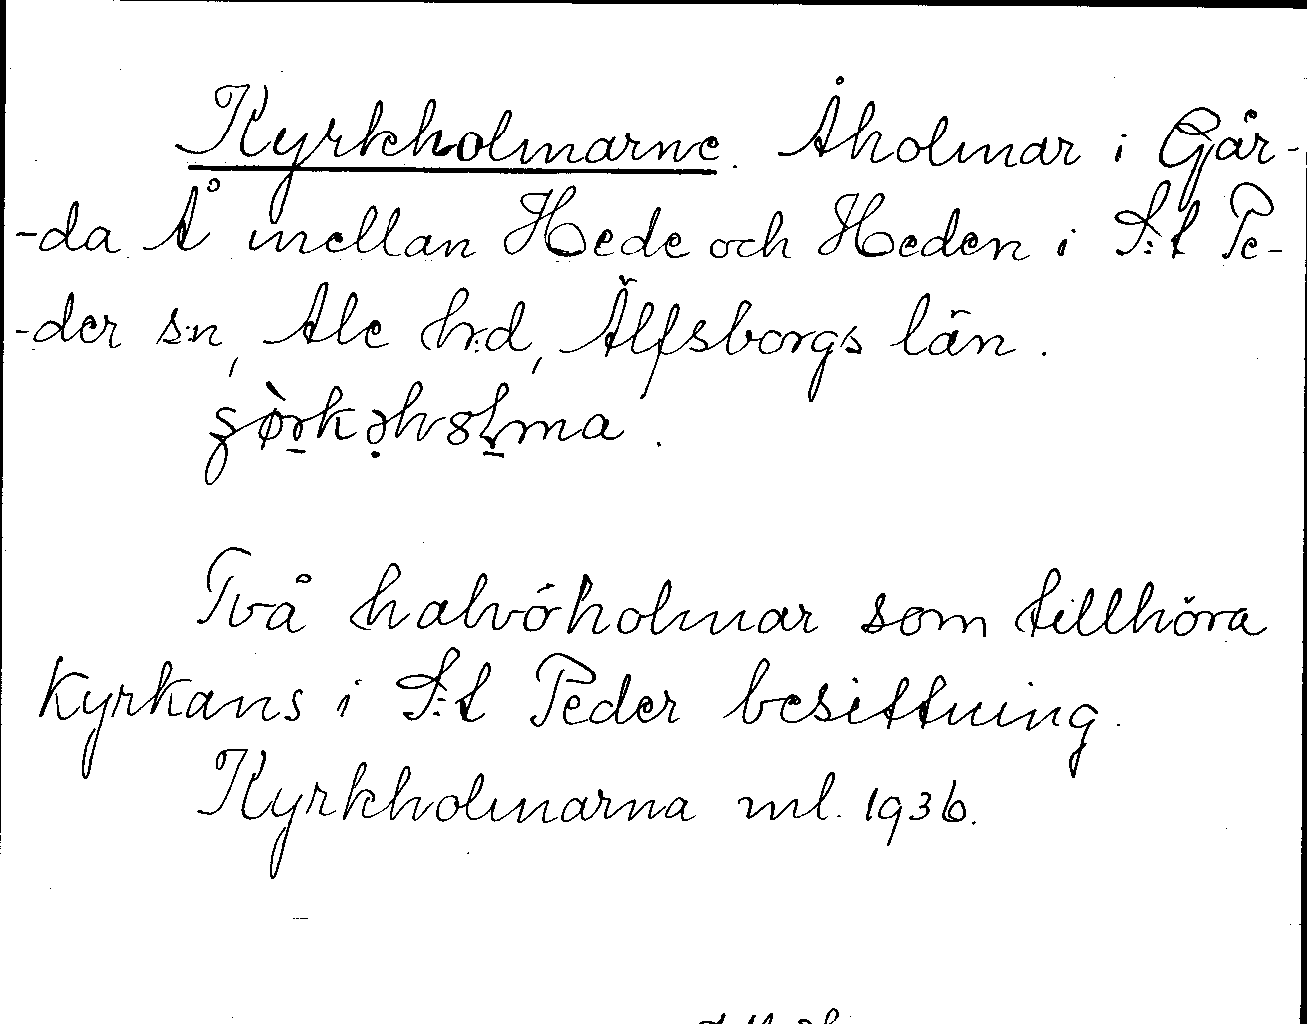 Kyrkholmarne. Åholmar i Går-
-da Å mellan Hede och Heden i S:t Pe-
-der s:n, Ale h:d, Älfsborgs län.
Två halvöholmar som tillhöra
Kyrkans i S:t Peder besittning.
Kyrkholmarna ml. 1936.